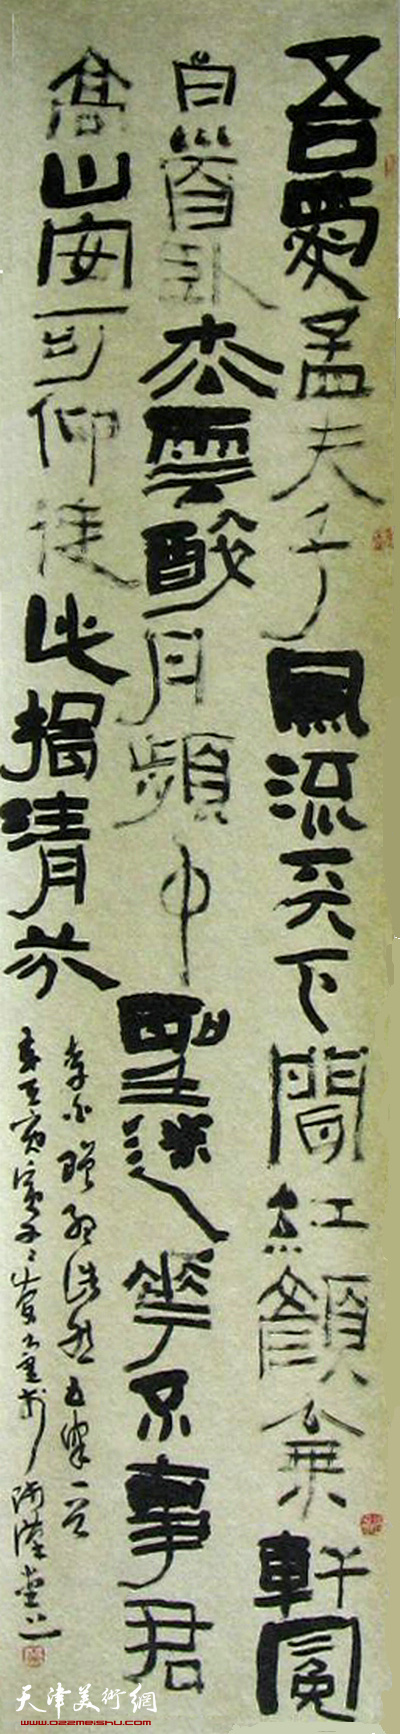 吾愛孟夫子風流天下聞紅顏棄軒冕
白首卧松雲醉月頻中聖迷花不事君
高山安可仰徒此揖清芬
李白贈孟浩然五律一首
天津美術網
www.022meishu.com